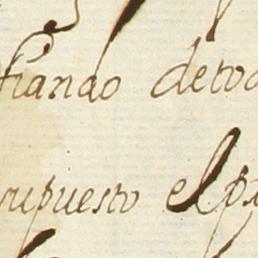 fiando detod
supuesto el p